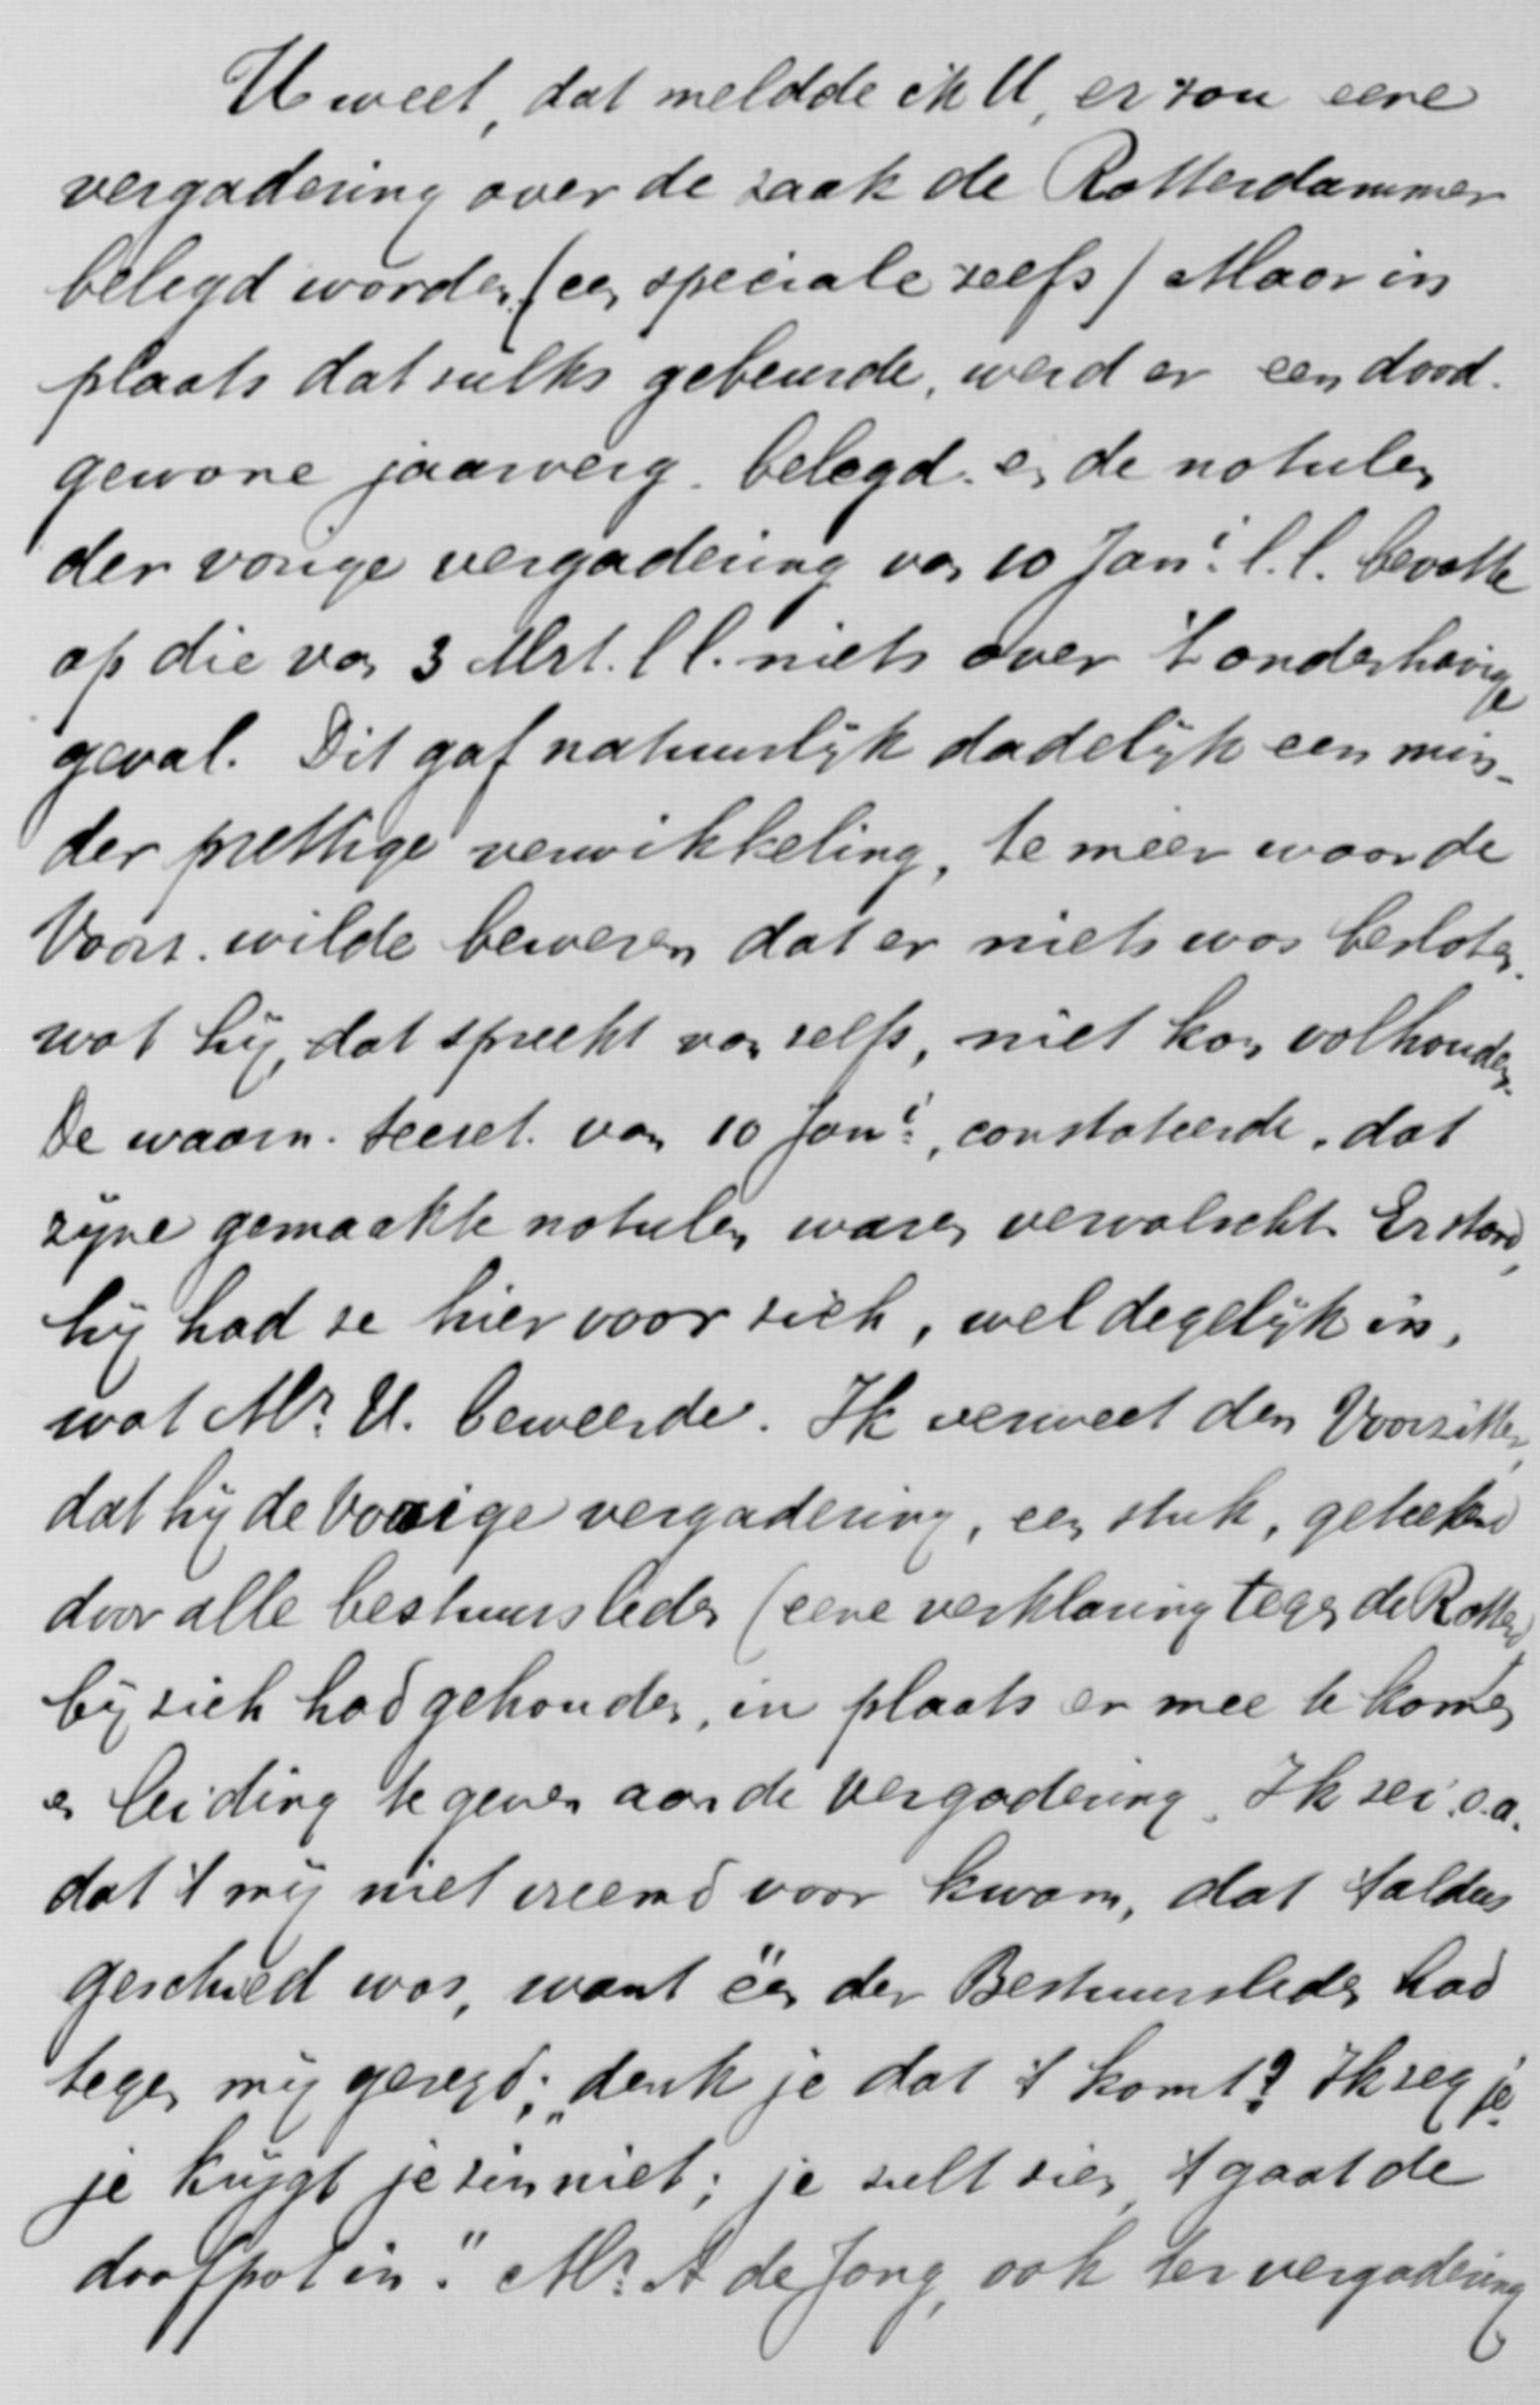 U weet, dat meldde ik U, er zou eene
vergadering over de zaak de Rotterdammer
belegd worden (een speciale zelfs) Maar in
plaats dat zulks gebeurde, werd er een dood.
gewone jaarverg. belegd. en de notulen
der vorige vergadering van 10 Jani. l.l. bevatte
op die van 3 Mrt. l l. niets over 't onderhavige
geval. Dit gaf natuurlijk dadelijk een min-
der prettige verwikkeling, te meer waar de
Voorz. wilde beweren dat er niets was besloten.
wat hij, dat spreekt van zelfs, niet kon volhouden.
De waarn. secret. van 10 Jani., constateerde, dat
zijne gemaakte notulen waren vervalscht. Er stond,
hij had ze hier voor zich, wel degelijk in,
wat Mr. U. beweerde. Ik verweet den Voorzitter,
dat hij de vorige vergadering, een stuk, geteekend
door alle bestuursleden (eene verklaring tegen de Rotterd)
bij zich had gehouden, in plaats er mee te komen
en leiding te geven aan de vergadering. Ik zei o.a.
dat 't mij niet vreemd voor kwam, dat 't aldus
geschied was, want één der Bestuursleden had
tegen mij gezegd; „denk je dat 't komt? Ik zeg je
je krijgt je zin niet; je zult zien, 't gaat de
doofpot in." Mr. A de Jong, ook ter vergadering